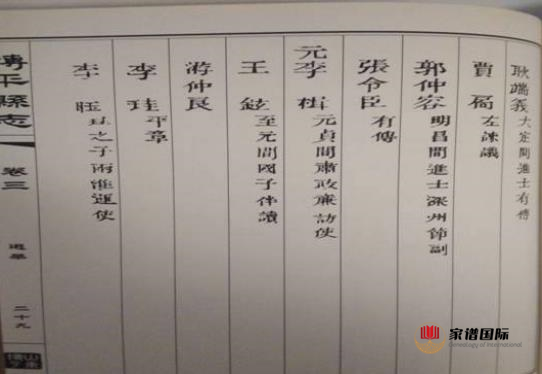 耿端义 大定間進士有傳
賈 咼 左諫議
郭仲容 明昌間進士深州節副
張令臣 有傳
元李楫 元貞間肅政廉訪使
王 鉉 至元間國子伴讀
游仲良
李 珪 平章
李 珏之子兩淮運使
博平縣志 卷三 選舉 二十九
家谱国际
Genealogy of International